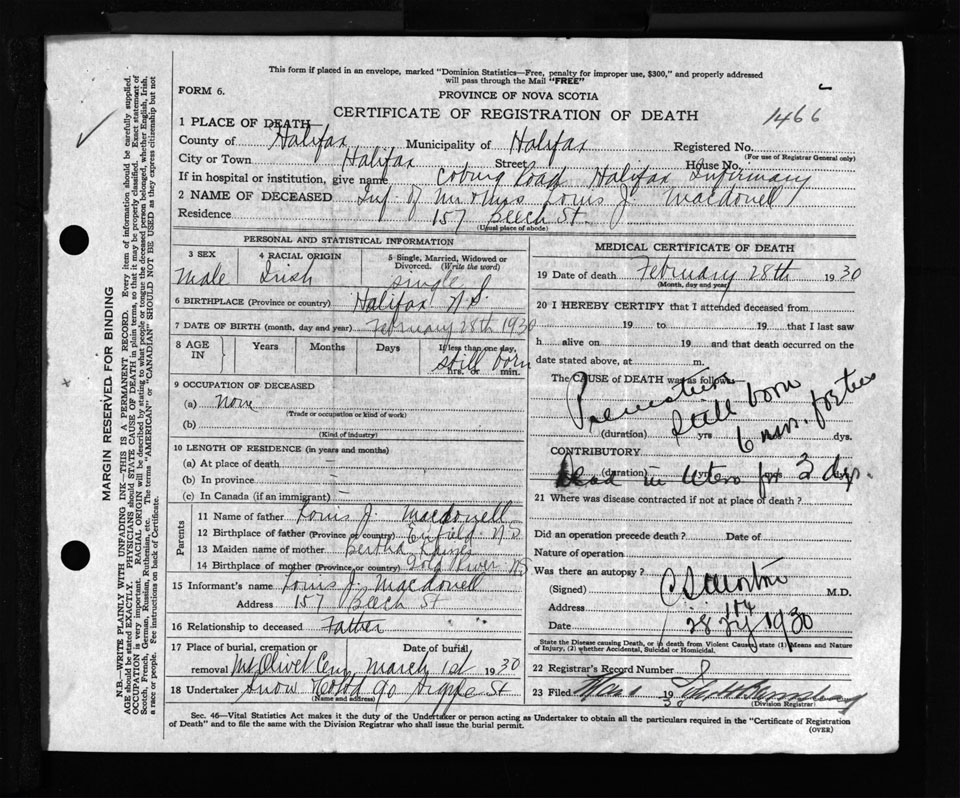 This form if placed in an envelope, marked "Dominion Statistics—Free, penalty for improper use, $300," and properly addressed
will pass through the Mail "FREE"
FORM 6.
PROVINCE OF NOVA SCOTIA
CERTIFICATE OF REGISTRATION OF DEATH
1466
1 PLACE OF DEATH
County of Halifax Municipality of Halifax Registered No.
(For use of Registrar General only)
City or Town Halifax Street House No.
If in hospital or institution, give name Coburg Road Halifax Infirmary
2 NAME OF DECEASED Inf. of Mr & Mrs Louis J. Macdonell
Residence 157 Beech St.
(Usual place of abode)
PERSONAL AND STATISTICAL INFORMATION
3 SEX 4 RACIAL ORIGIN 5 Single, Married, Widowed or Divorced. (Write the word)
Male Irish Single
6 BIRTHPLACE (Province or country) Halifax N.S.
7 DATE OF BIRTH (month, day and year) February 28th 1930
8 AGE IN Years Months Days If less than one day, hrs. or min.
still born
9 OCCUPATION OF DECEASED
(a) none
(Trade or occupation or kind of work)
(b)
(Kind of industry)
10 LENGTH OF RESIDENCE (in years and months)
(a) At place of death —
(b) In province —
(c) In Canada (if an immigrant) —
Parents
11 Name of father Louis J. Macdonell
12 Birthplace of father (Province or country) Enfield N S
13 Maiden name of mother Bertha
14 Birthplace of mother (Province or country) Gold River NS
15 Informant's name Louis J. Macdonell
Address 157 Beech St
16 Relationship to deceased Father
17 Place of burial, cremation or Date of burial
removal Mt Olivet Cem March 1st 1930
18 Undertaker Snow & Co Ltd 90 Argyle St
(Name and address)
MEDICAL CERTIFICATE OF DEATH
19 Date of death February 28th 1930
(Month, day and year)
20 I HEREBY CERTIFY that I attended deceased from
19 to 19 that I last saw
h alive on 19 and that death occurred on the
date stated above, at m.
The CAUSE OF DEATH was as follows
Premature
Still born
6 mos.
(duration) yrs dys.
CONTRIBUTORY
(duration)
Dead in utero for 3 dys.
21 Where was disease contracted if not at place of death?
Did an operation precede death? Date of
Nature of operation
Was there an autopsy?
(Signed) M.D.
Address
Date 28 1930
State the Disease causing Death, or in death from Violent Causes state (1) Means and Nature
of Injury, (2) whether Accidental, Suicidal or Homicidal.
22 Registrar's Record Number
23 Filed 19
(Division Registrar)
Sec. 46—Vital Statistics Act makes it the duty of the Undertaker or person acting as Undertaker to obtain all the particulars required in the "Certificate of Registration
of Death" and to file the same with the Division Registrar who shall issue the burial permit.
(OVER)
MARGIN RESERVED FOR BINDING
N.B.—WRITE PLAINLY WITH UNFADING INK—THIS IS A PERMANENT RECORD. Every item of information should be carefully supplied.
AGE should be stated EXACTLY. PHYSICIANS should STATE CAUSE OF DEATH in plain terms, so that it may be properly classified. Exact statement of
OCCUPATION is very important. RACIAL ORIGIN will be described by stating to what people or tongue the deceased person belonged, whether English, Irish,
Scotch, French, German, Russian, Ruthenian, etc. The terms "AMERICAN" or "CANADIAN" SHOULD NOT BE USED as they express citizenship but not
a race or people. See instructions on back of Certificate.